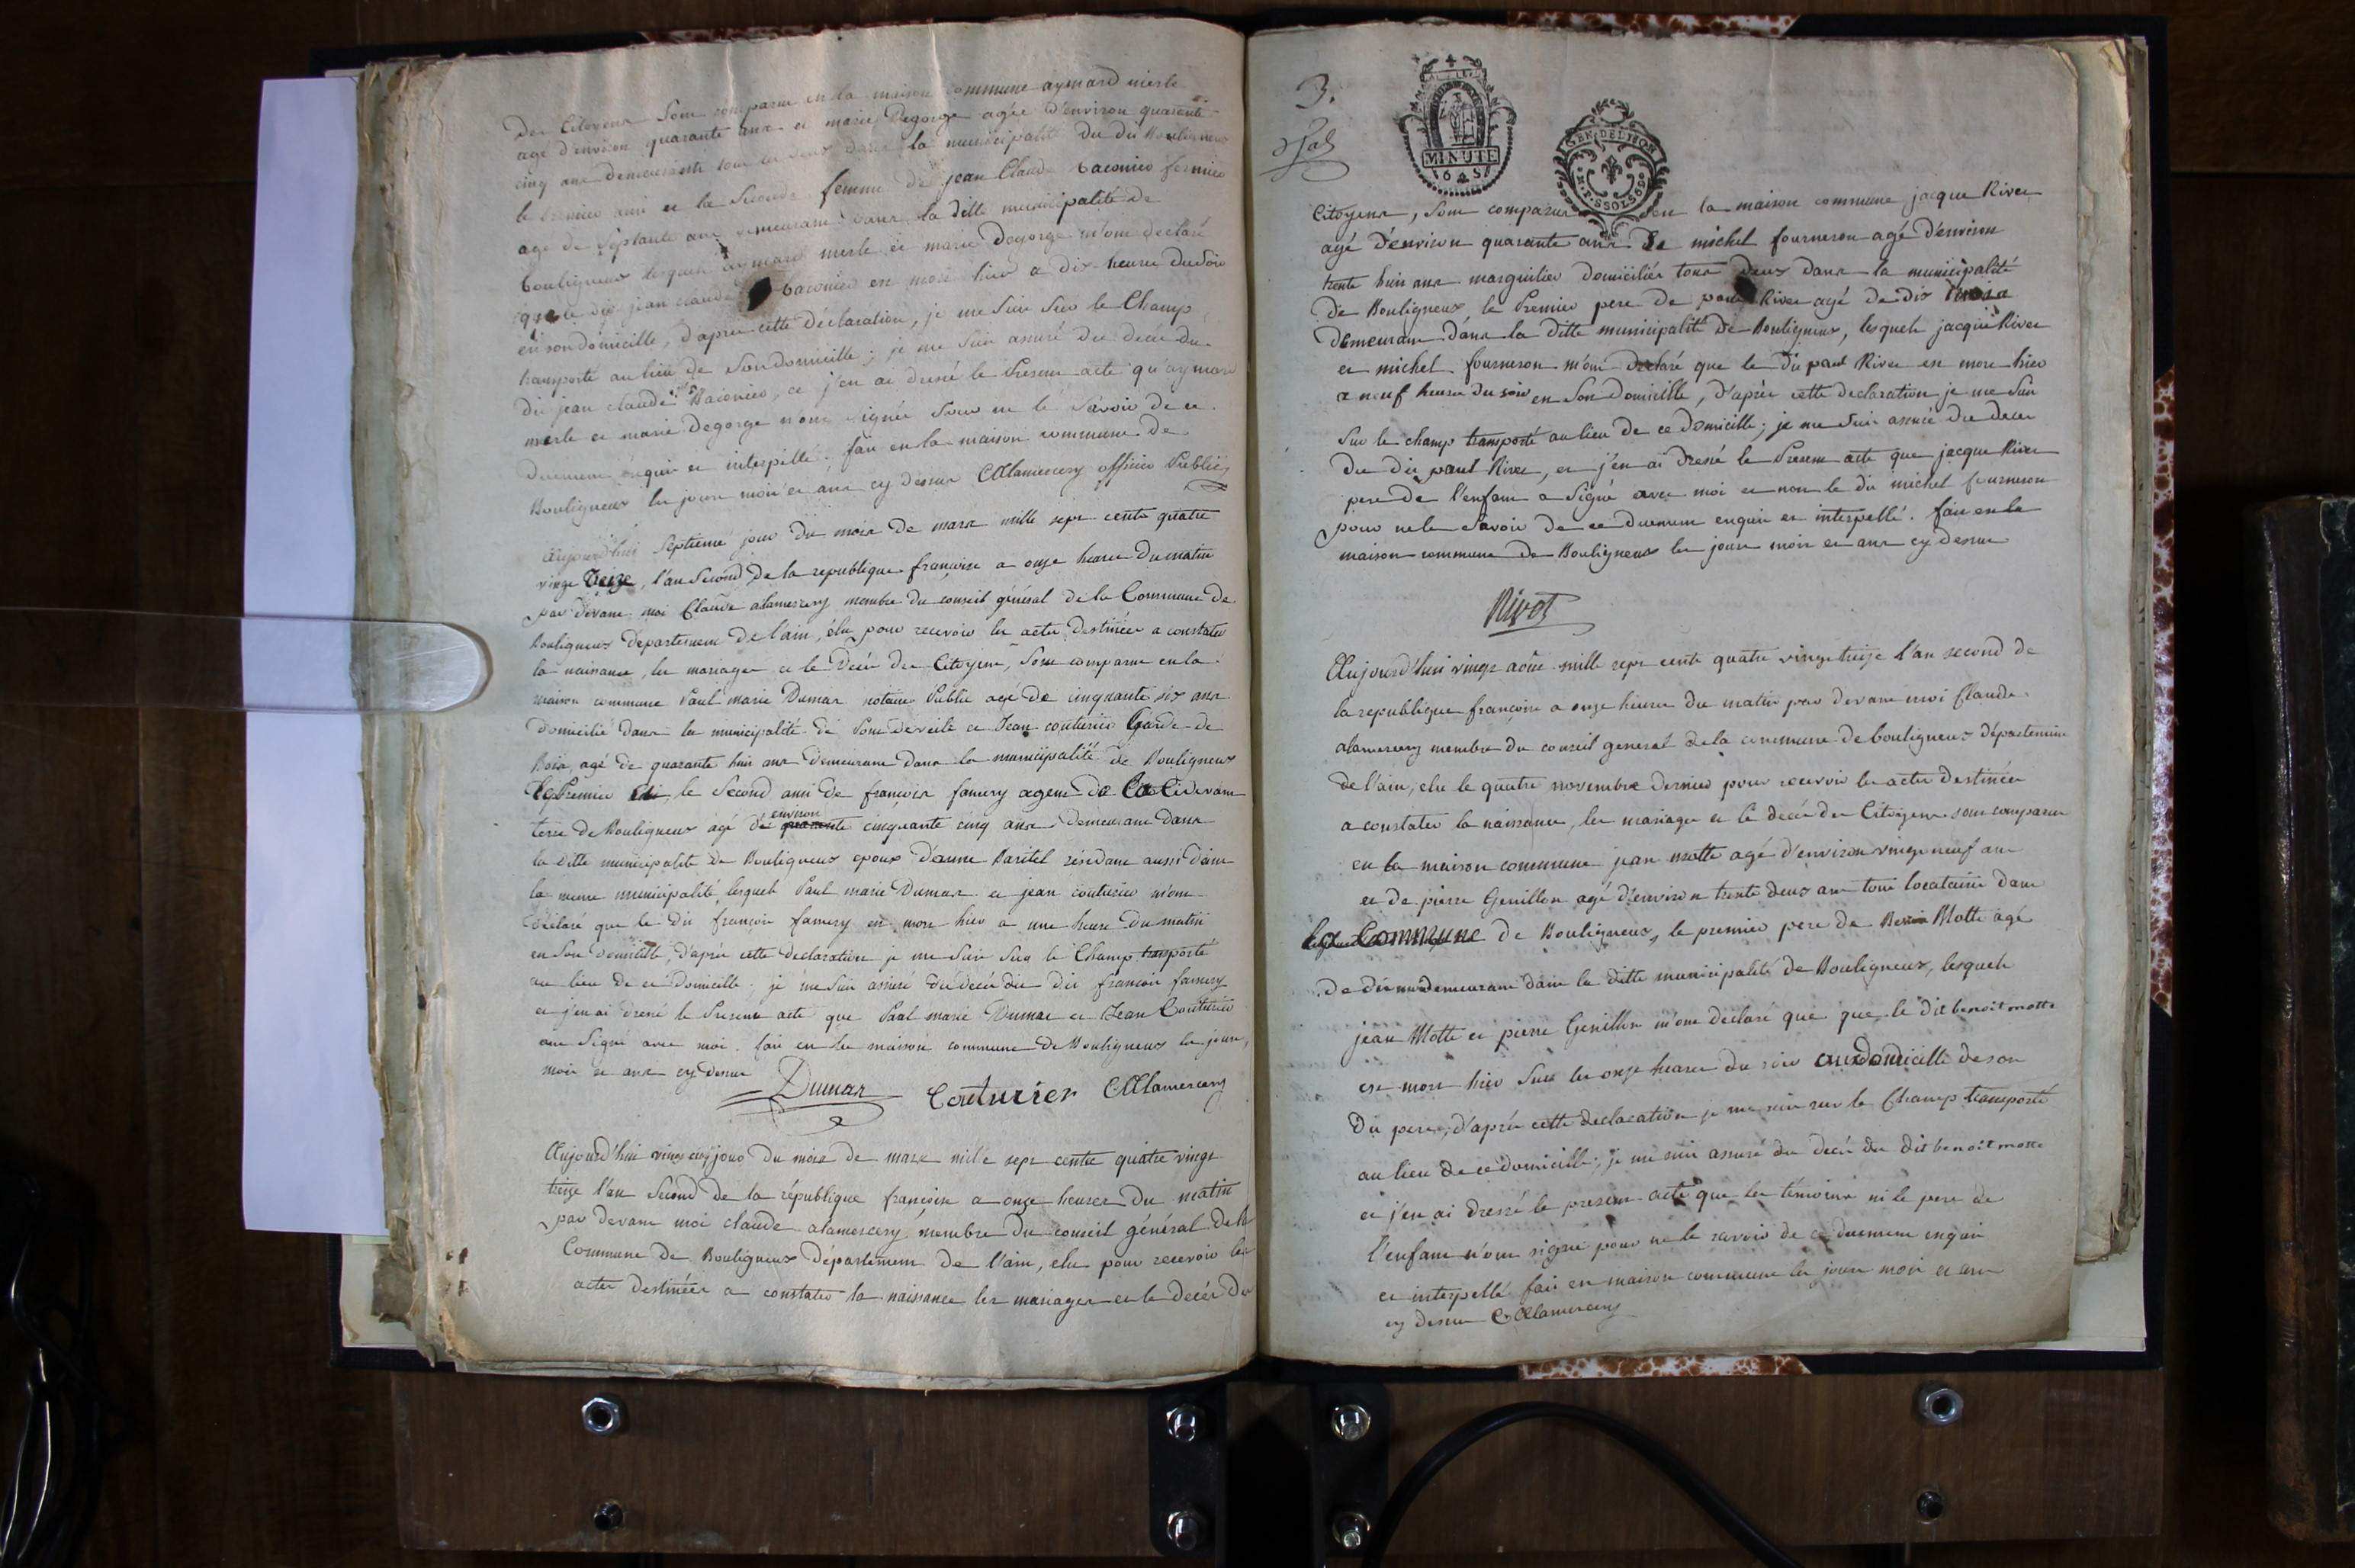 des Citoyens sont comparus en la maison commune aymard merle
agé d'environ quarante ans et marie Degorge agée d'environ quarante
cinq ans demeurants tous les deux dans la municipalité du dit Bouligneux
le premier ami et la seconde femme de jean Claude baconier fermier
agé de septante ans demeurant dans la ditte municipalité de
bouligneux lesquels aymard merle et marie degorge m'ont déclaré
que le dit jean claude baconier est mort hier a dix heures du soir
en son domicille, d'après cette déclaration, je me suis sur le Champ
transporté au lieu de son domicille; je me suis assuré du decés du
dit jean claude Baconier, et j'en ai dressé le present acte qu'aymard
merle et marie degorge n'ont signés pour ne le savoir de ce
duement enquis et interpellé. fait en la maison commune de
Bouligneux les jours mois et ans cy dessus CAlamercery officier Public
Aujourd'hui septieme jour du mois de mars mille sept cents quatre
vingt treize, l'an second de la republique françoise a onze heures du matin
par devant moi Claude alamercery membre du conseil général de la Commune de
Bouligneux Departement de l'ain, élu pour recevoir les actes destinées a constater
la naissance, les mariages et le Decés des Citoyens, sont comparus en la
maison commune Paul marie Dumas notaire Public agé de cinquante six ans
domicilié dans la municipalité de Pont de veile et Jean couturier Garde de
Bois, agé de quarante huit ans demeurant dans la municipalité de Bouligneux
Le Premier le second ami de françois famery agent de la Cidevant
terre de Bouligneux agé de environ quarante cinquante cinq ans demeurant dans
la ditte municipalité de Bouligneux epoux d'anne Baritel résidant aussi dans
la meme municipalité, lesquels Paul marie Dumas et jean couturier m'ont
déclaré que le dit françois famery est mort hier a une heure du matin
en son domicille, d'après cette declaration je me suis sur le Champ transporté
au lieu de ce domicille; je me suis assuré du decés du dit françois famery
et j'en ai dressé le present acte que Paul marie Dumas et Jean Couturier
ont signé avec moi. fait en la maison commune de Bouligneux les jours,
mois et ans cy dessus
Dumas Couturier CAlamercery
Aujourd'hui vingt cinq jour du mois de mars mille sept cents quatre vingt
treize l'an second de la république françoise a onze heures du matin
par devant moi claude alamercery membre du conseil général de la
Commune de Bouligneux département de l'ain, elu pour recevoir les
actes destinées a constater la naissance les mariages et le decés des
3.
MINUTE
GEN. DE DIJON
Citoyens, sont comparus en la maison commune jacque Rivet
agé d'environ quarante ans et michel fourneron agé d'environ
trente huit ans marguilier domiciliés tous deux dans la municipalité
de Bouligneux, le Premier pere de paul Rivet agé de dix mois
demeurant dans la ditte municipalité de Bouligneux, lesquels jacque Rivet
et michel fourneron m'ont declaré que le dit paul Rivet est mort hier
a neuf heures du soir en son domicille, d'après cette declaration je me suis
sur le champ transporté au lieu de ce domicille; je me suis assuré du decés
du dit paul Rivet, et j'en ai dressé le present acte que jacque Rivet
pere de l'enfant a signé avec moi et non le dit michel fourneron
pour ne le savoir de ce duement enquis et interpellé. fait en la
maison commune de Bouligneux les jours mois et ans cy dessus
Rivot
Aujourd'hui vingt août mille sept cents quatre vingt treize l'an second de
la republique françoise a onze heures du matin par devant moi Claude
alamercery membre du conseil general de la commune de bouligneux département
de l'ain, elu le quatre novembre dernier pour recevoir les actes destinées
a constater la naissance, les mariages et le decés des Citoyens sont comparus
en la maison commune jean motte agé d'environ vingt neuf ans
et de pierre Genillon agé d'environ trente deux ans tous locataires dans
la Commune de Bouligneux, le premier pere de Motte agé
demeurant dans la ditte municipalité de Bouligneux, lesquels
jean Motte et pierre Genillon m'ont declaré que que le dit benoit motte
est mort hier sur les onze heures du soir au domicille de son
dit pere, d'après cette declaration je me suis sur le Champ transporté
au lieu de ce domicille; je me suis assuré du decés du dit benoit motte
et j'en ai dressé le present acte que les témoins ni le pere de
l'enfant n'ont signé pour ne le savoir de ce duement enquis
et interpellé fait en maison commune les jours mois et ans
cy dessus CAlamercery